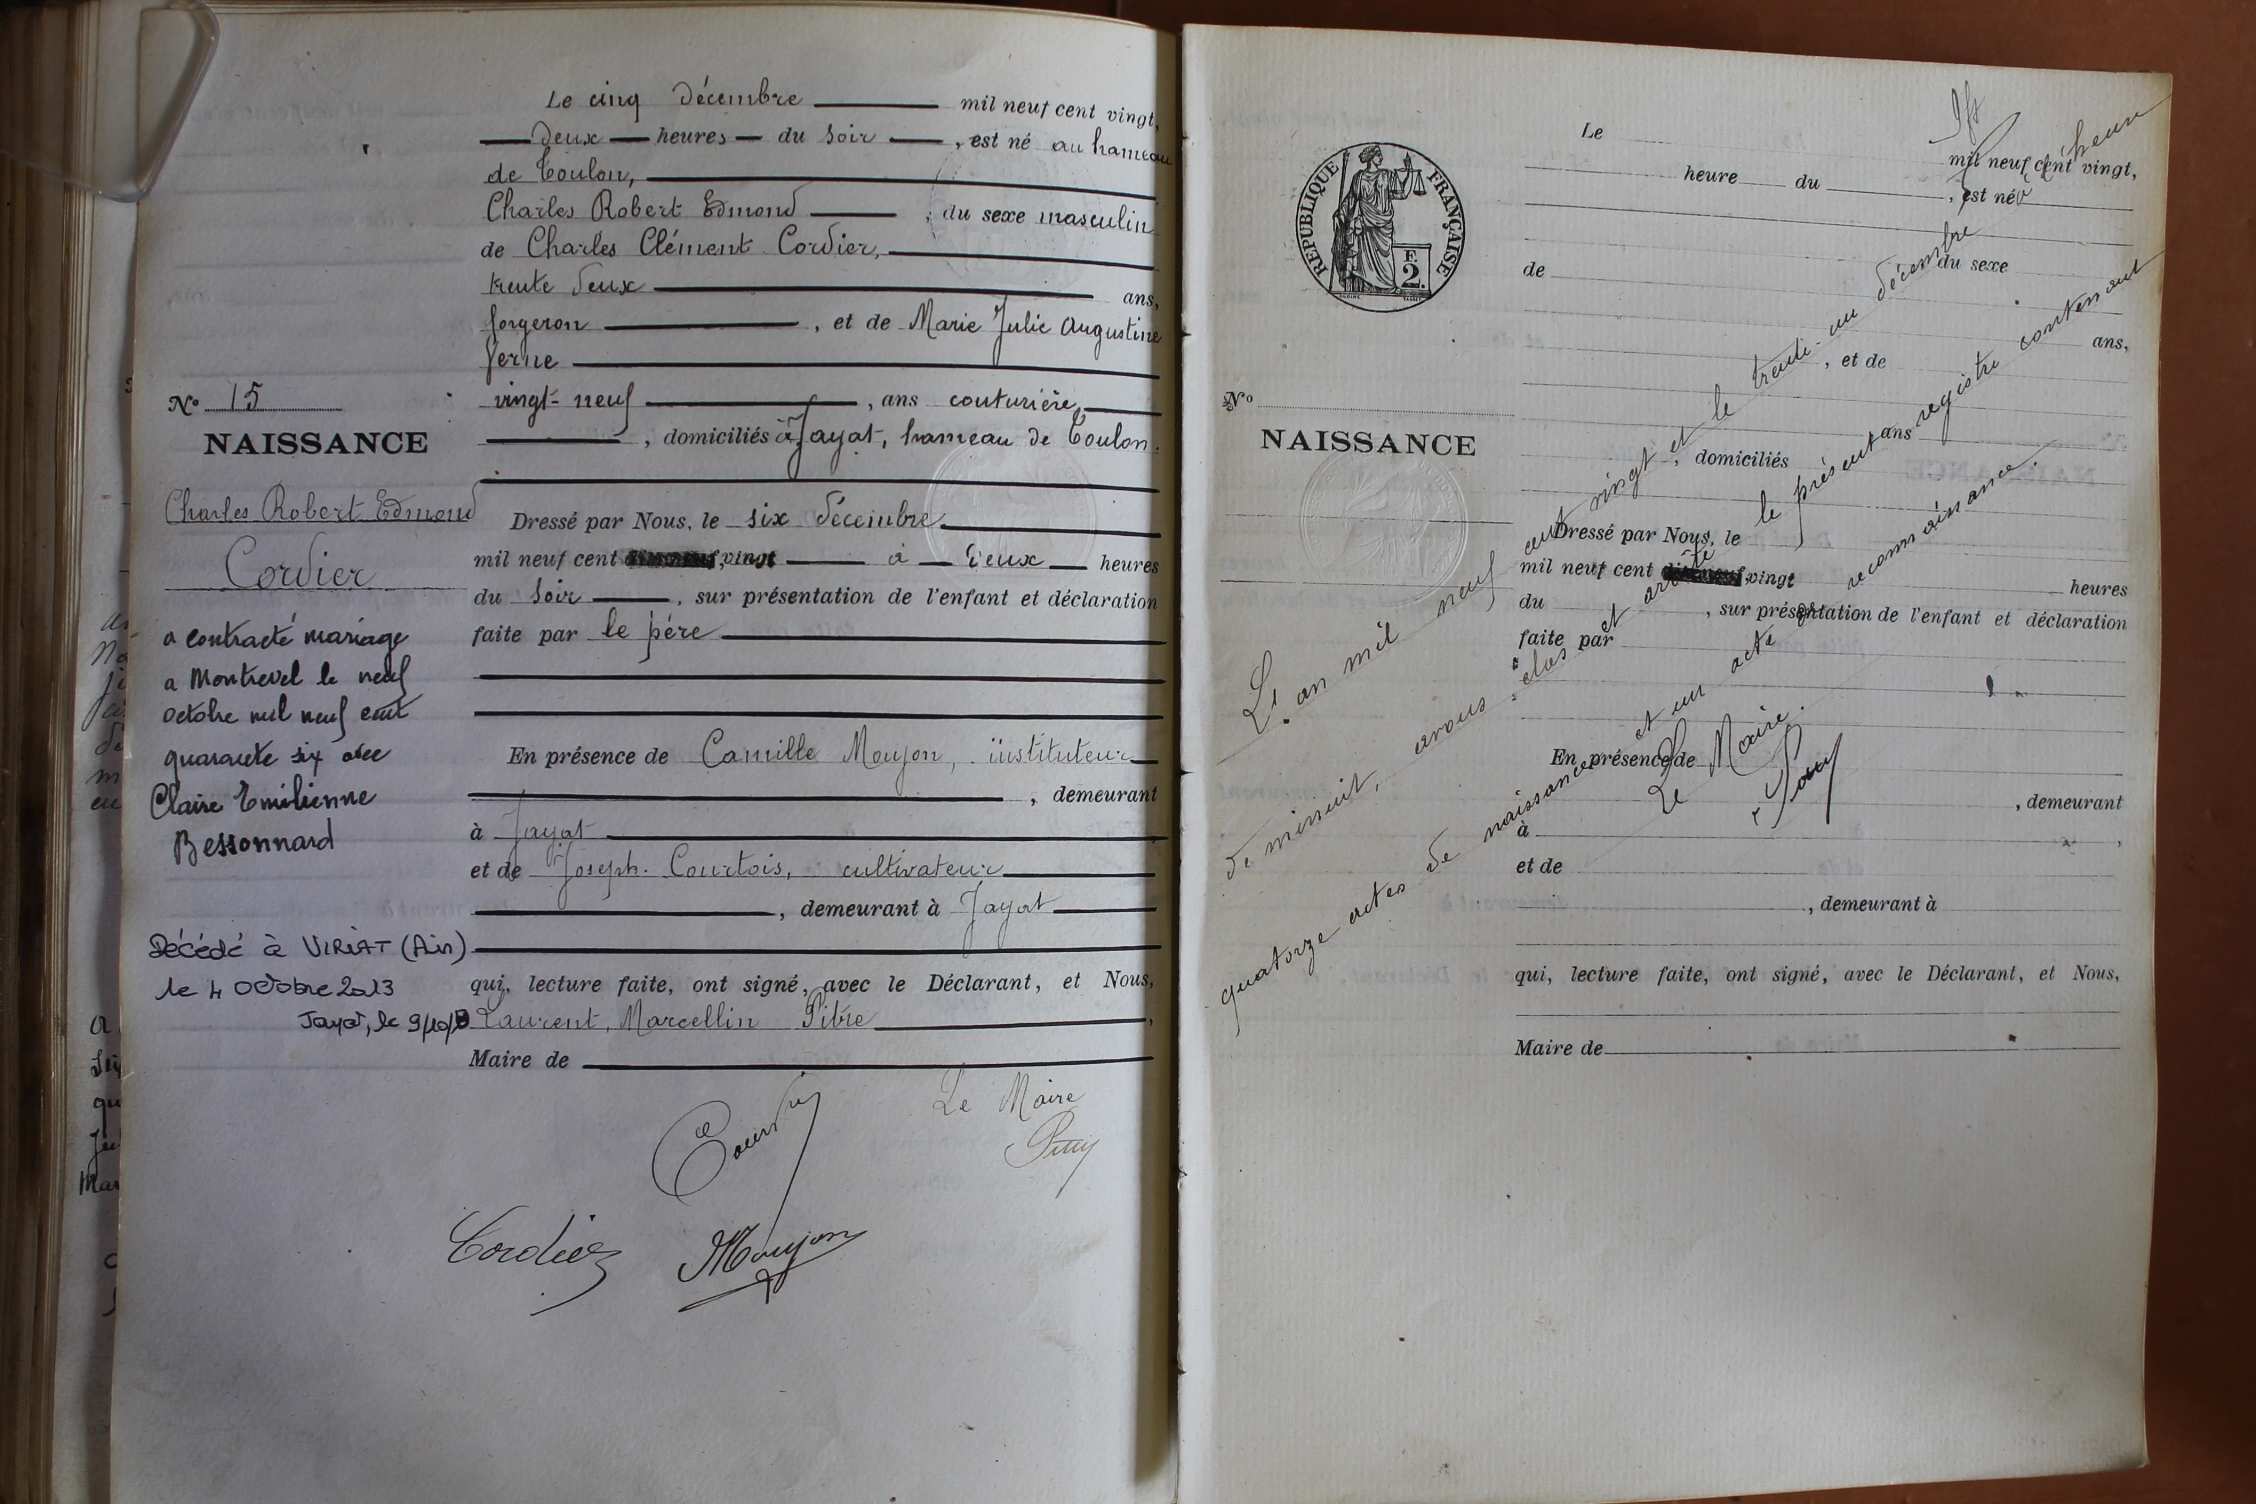 Le cinq décembre mil neuf cent vingt,
deux heures du soir , est né au hameau
de Toulon,
Charles Robert Edmond , du sexe masculin
de Charles Clément Cordier,
trente deux ans,
forgeron , et de Marie Julie Augustine
Ferne
vingt-neuf , ans couturière
, domiciliés à Jayat, hameau de Toulon.
Nº 15
NAISSANCE
Charles Robert Edmond
Cordier
a contracté mariage
a Montrevel le neuf
octobre mil neuf cent
quarante six avec
Claire Emilienne
Bessonnard
Décédé à VIRIAT (Ain)
le 4 octobre 2013
Jayat, le 9/10/13
Dressé par Nous, le six décembre
mil neuf cent vingt à deux heures
du soir , sur présentation de l'enfant et déclaration
faite par le père
En présence de Camille Moujon, instituteur
, demeurant
à Jayat
et de Joseph Courtois, cultivateur
, demeurant à Jayat
qui, lecture faite, ont signé, avec le Déclarant, et Nous,
Laurent, Marcellin Pitre ,
Maire de
Le Maire
Cordier
Moujon
RÉPUBLIQUE FRANÇAISE
F.
2.
Nº
NAISSANCE
Le mil neuf cent vingt,
heure du , est né
du sexe
de
ans,
, et de
ans
, domiciliés
Dressé par Nous, le
mil neuf cent vingt heures
du , sur présentation de l'enfant et déclaration
faite par
En présence de
, demeurant
à ,
et de
, demeurant à
qui, lecture faite, ont signé, avec le Déclarant, et Nous,
Maire de
L'an mil neuf cent vingt et le trente-un décembre heure
de minuit, avons clos et arrêté le présent registre contenant
quatorze actes de naissance et un acte de reconnaissance.
Le Maire.